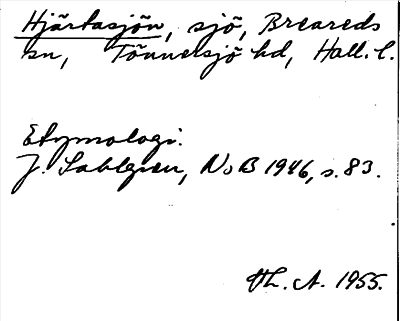 Hjärtasjön, sjö, Breareds
sn, Tönnersjö hd, Hall. l.
Etymologi:
J. Sahlgren, NoB 1946, s. 83.
Th. A. 1955.